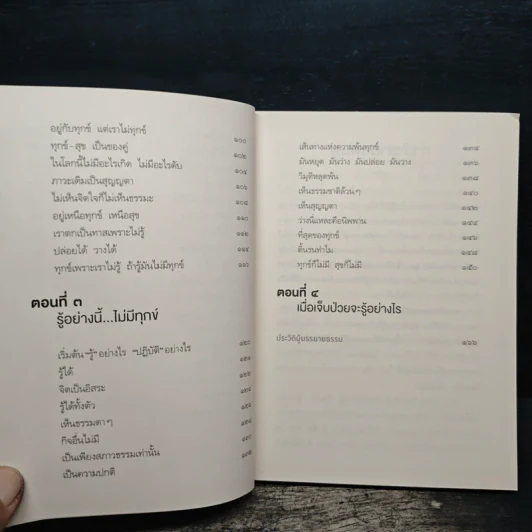 อยู่กับทุกข์ แต่เราไม่ทุกข์ ๑๐๐
ทุกข์-สุข เป็นของคู่ ๑๐๒
ในโลกนี้ไม่มีอะไรเกิด ไม่มีอะไรดับ ๑๐๔
ภาวะเดิมเป็นสุญญตา ๑๐๕
ไม่เห็นจิตใจก็ไม่เห็นธรรมะ
อยู่เหนือทุกข์ เหนือสุข
เราตกเป็นทาสเพราะไม่รู้
ปล่อยได้ วางได้ ๑๑๔
ทุกข์เพราะเราไม่รู้ ถ้ารู้มันไม่มีทุกข์
ตอนที่ ๓
รู้อย่างนี้...ไม่มีทุกข์
เริ่มต้น “รู้” อย่างไร “ปฏิบัติ” อย่างไร ๑๒๐
รู้ได้ ๑๒๒
จิตเป็นอิสระ ๑๒๔
รู้ได้ทั้งตัว
เห็นธรรมดาๆ
กิจอื่นไม่มี
เป็นเพียงสภาวธรรมเท่านั้น
เป็นความปกติ
เส้นทางแห่งความพ้นทุกข์ ๑๓๔
มันหยุด มันว่าง มันปล่อย มันวาง ๑๓๖
วิมุติหลุดพ้น ๑๓๘
เห็นธรรมชาติล้วนๆ ๑๔๐
เห็นสุญญตา ๑๔๒
ว่างนี่แหละคือนิพพาน ๑๔๔
ที่สุดของทุกข์ ๑๔๖
ดิ้นรนทำไม ๑๔๘
ทุกข์ก็ไม่มี สุขก็ไม่มี ๑๕๐
ตอนที่ ๔
เมื่อเจ็บป่วยจะรู้อย่างไร
ประวัติผู้บรรยายธรรม ๑๖๖